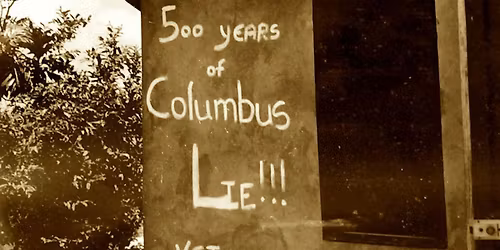 500 YEARS
of
Columbus
LIE!!!
YET